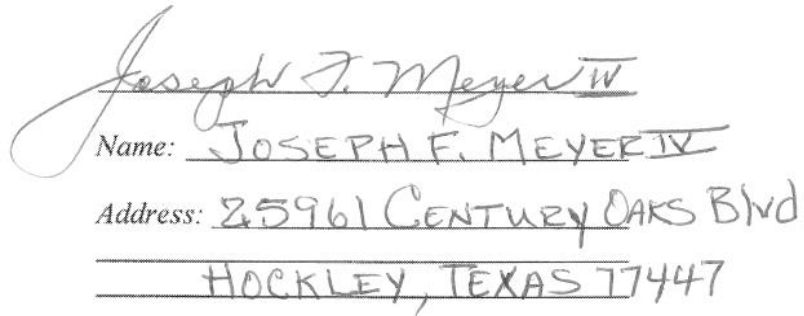 Joseph F. Meyer IV
Name: JOSEPH F. MEYER IV
Address: 25961 CENTURY OAKS Blvd
HOCKLEY, TEXAS 77447